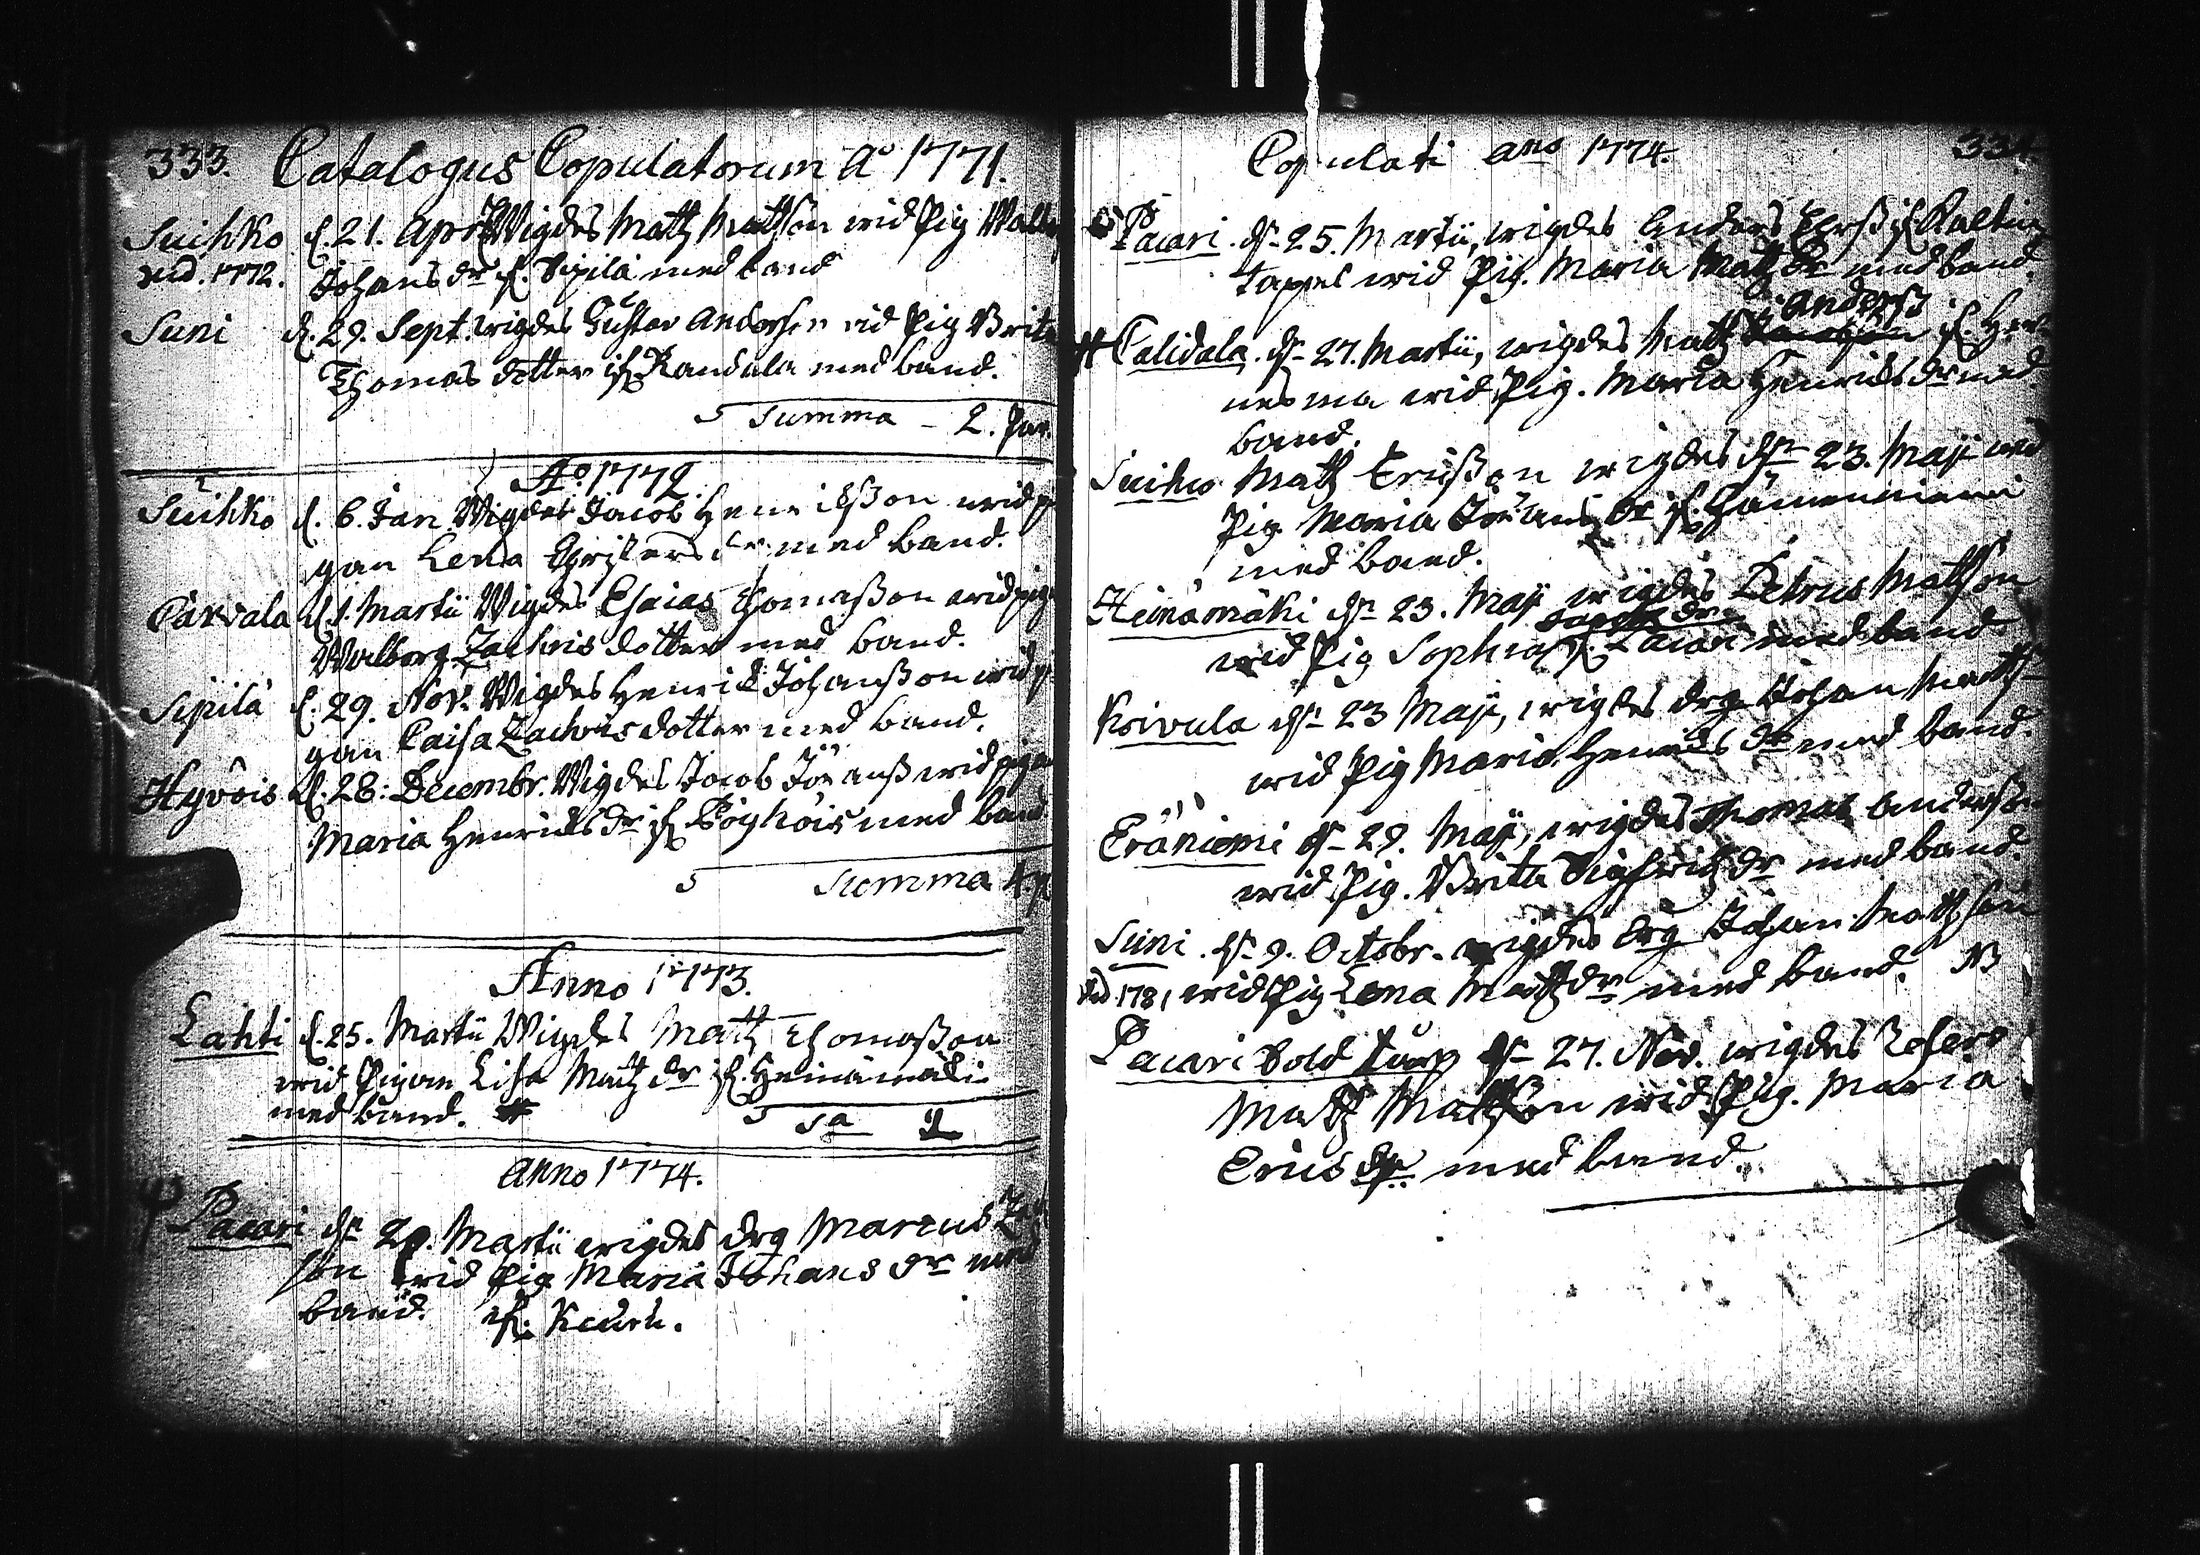 333. Catalogus Copulatorum Aº 1771.
Suihko d. 21. April Wigdes Matz Matsson wid Pig Walb
vid. 1772. Johans dr fr. Sipilä med band
Suni d. 29. Sept. wigdes Gustav Andersson wid Pig Brita
Thomas dotter ifr. Randala med band.
Summa - 2. Par.
Aº 1772
Suihko d. 6. Jan. Wigdes Jacob Henrichsson wid pi
gan Lena Christers dr med band.
Parvala d. 1. Martii Wigdes Esaias Thomasson wid pig
Walborg Zachris dotter med band.
Sipilä d. 29. Nov. Wigdes Henrik Johansson wid pi
gan Caisa Zachris dotter med band.
Hyvöis d. 28: Decembr. Wigdes Jacob Johanss wid pigan
Maria Henrichs dr ifr. Pöyhöis med band
Summa 4 p
Anno 1773.
Lahti d. 25. Martii Wigdes Matz Thomasson
wid Pigan Lisa Matz dr ifr. Heinämäki
med band. Sa 1
Anno 1774.
Pacari dn 20. Martii wigdes drg Marcus
son wid Pig Maria Johans dr med
band. ifr. Keuru.
Copulati ano 1774.
Pacari. dn 25. Martii, wigdes Anders ifr. Kaltin
tappel wid Pig. Maria Matz dr med band.
Anderss
Calidala. dn 27. Martii, wigdes Matz ifr. Her
nesma wid Pig. Maria Henrichs dr med
band.
Suihco Matz Ericsson wigdes dn 23. Maji wid
Pig Maria Johans dr ifr. Hämenniemi
med band.
Heinämäki dn 23. Maji wigdes Petrus Matsson
wid Pig Sophia fr. Pacari med band
Koivula dn 23 Maji, wigdes drg Johan Mats
wid Pig Maria Henrichs dr med band.
Eräniemi dn 29. Maji, wigdes Thomas Andersson
wid Pig. Brita Sigfridz dr med band.
Suni. dn 9. Octobr. wigdes drg Johan Matzson
vid 1781, wid Pig Lena Matz dr med band. N3
Pacari Sold torp dn 27. Nov. wigdes Reserv
Matz Matsson wid Pig. Maria
Erics dr. med band.